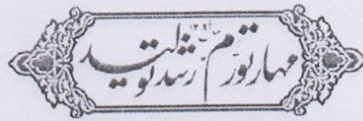 مهار تورم رشد تولید